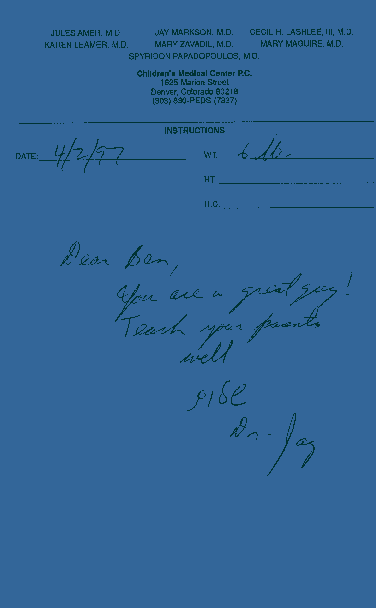 JULES AMER, M.D. JAY MARKSON, M.D. CECIL H. LASHLEE, III, M.D.
KAREN LEAMER, M.D. MARY ZAVADIL, M.D. MARY MAGUIRE, M.D.
SPYRIDON PAPADOPOULOS, M.D.
Children's Medical Center P.C.
1625 Marion Street
Denver, Colorado 80218
(303) 830-PEDS (7337)
INSTRUCTIONS
DATE: 4/2/97 WT.
HT.
H.C.
Dear Ben,
You are a great guy!
Teach your parents
well
Dr. Jay